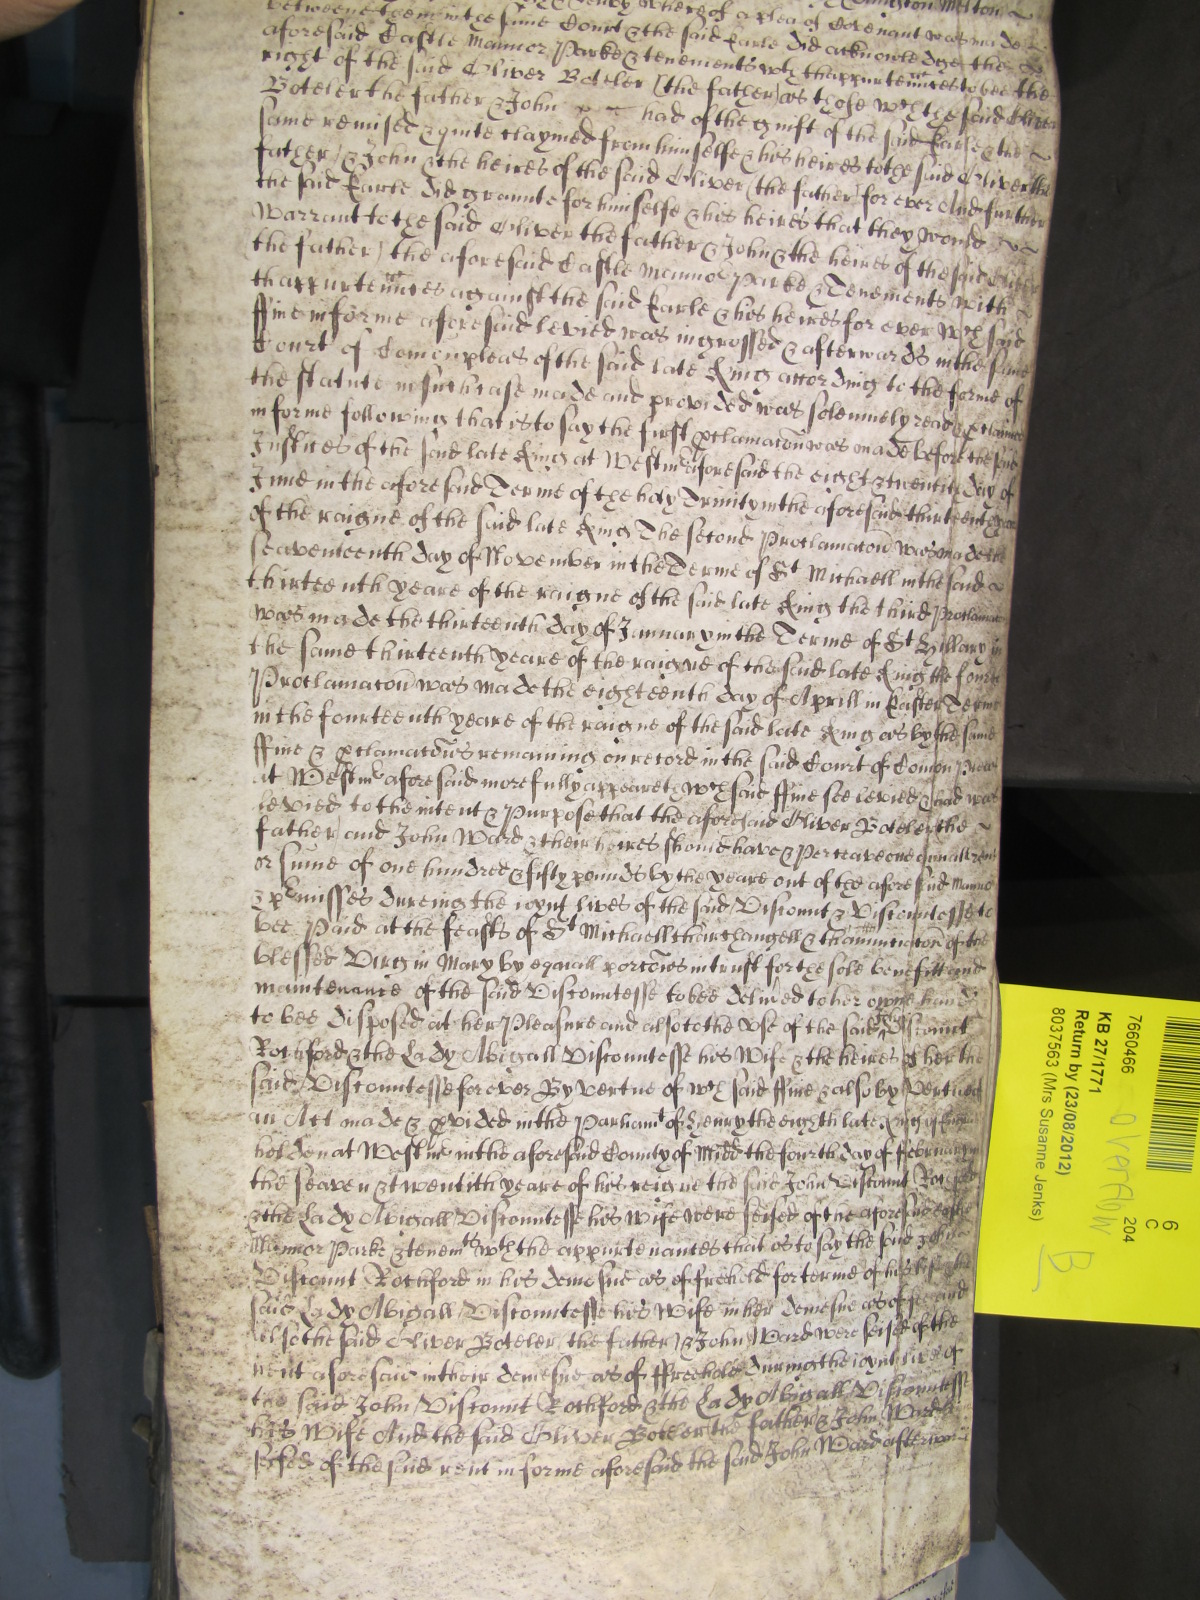 betweene them in the same Court & the said Earle did acknowledge the
aforesaid Castle Mannor Parke & tenements wth thappurtennces to bee the
right of the said Oliver Boteler (the father) as those wch the said Oliver
Boteler the father & John had of the guift of the said Earle & the
same remised & quite claymed from himselfe & his heires to the said Oliver the
father) & John & the heires of the said Oliver (the father) for ever And further
the said Earle did graunte for himselfe & his heires that they would
warrant to the said Oliver the father & John & the heires of the said Oliver
the father) the aforesaid Castle Mannor Parke & Tenements with
thappurtennces against the said Earle & his heires for ever Wch said
ffine in forme aforesaid levied was ingrossed & afterwards in the same
Court of Comon pleas of the said late King according to the forme of
the statute in such case made and provided was solemnely read & pclaimed
in forme following that is to say the first pclamacon was made before the said
Justices of the said late King at Westmr aforesaid the eight & twentith day of
June in the aforesaid Terme of the holy Trinity in the aforesaid thirteenth yeare
of the raigne of the said late King The second Proclamacon was made the
seaventeenth day of November in the Terme of St Michaell in the said
thirteenth yeare of the raigne of the said late King the third Proclamacon
was made the thirteenth day of January in the Terme of St Hillary in
the same thirteenth yeare of the raigne of the said late King the fourth
Proclamacon was made the eighteenth day of Aprill in Easter Terme
in the fourteenth yeare of the raigne of the said late King as by the same
ffine & pclamacons remaining on record in the said Court of Comon Pleas
at Westmr aforesaid more fully appeareth wch said ffine soe levied & had was
levied to the intent & Purpose that the aforesaid Oliver Boteler the
father and John Ward & their heires should have & Perceave one annuall rent
or sume of one hundred & fifty pounds by the yeare out of the aforesaid Mannor
& pmisses dureing the ioynt lives of the said Viscount & Viscountesse to
bee Paid at the feasts of St Michaell tharchangell & thannunciacon of the
blessed Virgin Mary by equall porcons in trust for the sole benefitt and
maintenance of the said Viscountesse to bee delived to her owne hands
to bee disposed at her Pleasure and also to the vse of the said Viscount
Rochford & the Lady Abigall Viscountesse his Wife & the heires of her the
said Viscountesse for ever By vertue of wch said ffine & also by Vertue of
an Act made & pvided in the Parliamt of Henry the eighth late King of England
holden at Westmr in the aforesaid County of Midd the fourth day of February in
the seaven & twentith yeare of his reigne the said John Viscount Rochford
& the Lady Abigall Viscountesse his Wife were seised of the aforesaid Castle
Mannor Parke & tenemts wth the appurtenances that is to say the said John
Viscount Rochford in his demesne as of freehold for terme of his life & the
said Lady Abigall Viscountesse his Wife in her demesne as of fee and
also the said Oliver Boteler the father & John Ward were seised of the
rent aforesaid in their demesne as of ffreehold during the ioynt lives of
the said John Viscount Rochford & the Lady Abigall Viscountesse
his Wife And the said Oliver Boteler the father & John Ward
seised of the said rent in forme aforesaid the said John Ward afterward
7660466
overflow
204
6
C
KB 27/1771
Return by (23/08/2012)
8037563 (Mrs Susanne Jenks)
B